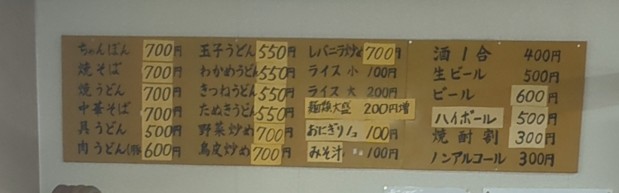 ちゃんぽん 700円
焼そば 700円
焼うどん 700円
中華そば 700円
具うどん 500円
肉うどん 600円
玉子うどん 550円
わかめうどん 550円
きつねうどん 550円
たぬきうどん 550円
野菜炒め 700円
鳥皮炒め 700円
レバニラ炒め 700円
ライス 小 100円
ライス 大 200円
麺類大盛 200円増
おにぎり1コ 100円
みそ汁 100円
酒1合 400円
生ビール 500円
ビール 600円
ハイボール 500円
焼酎割 300円
ノンアルコール 300円